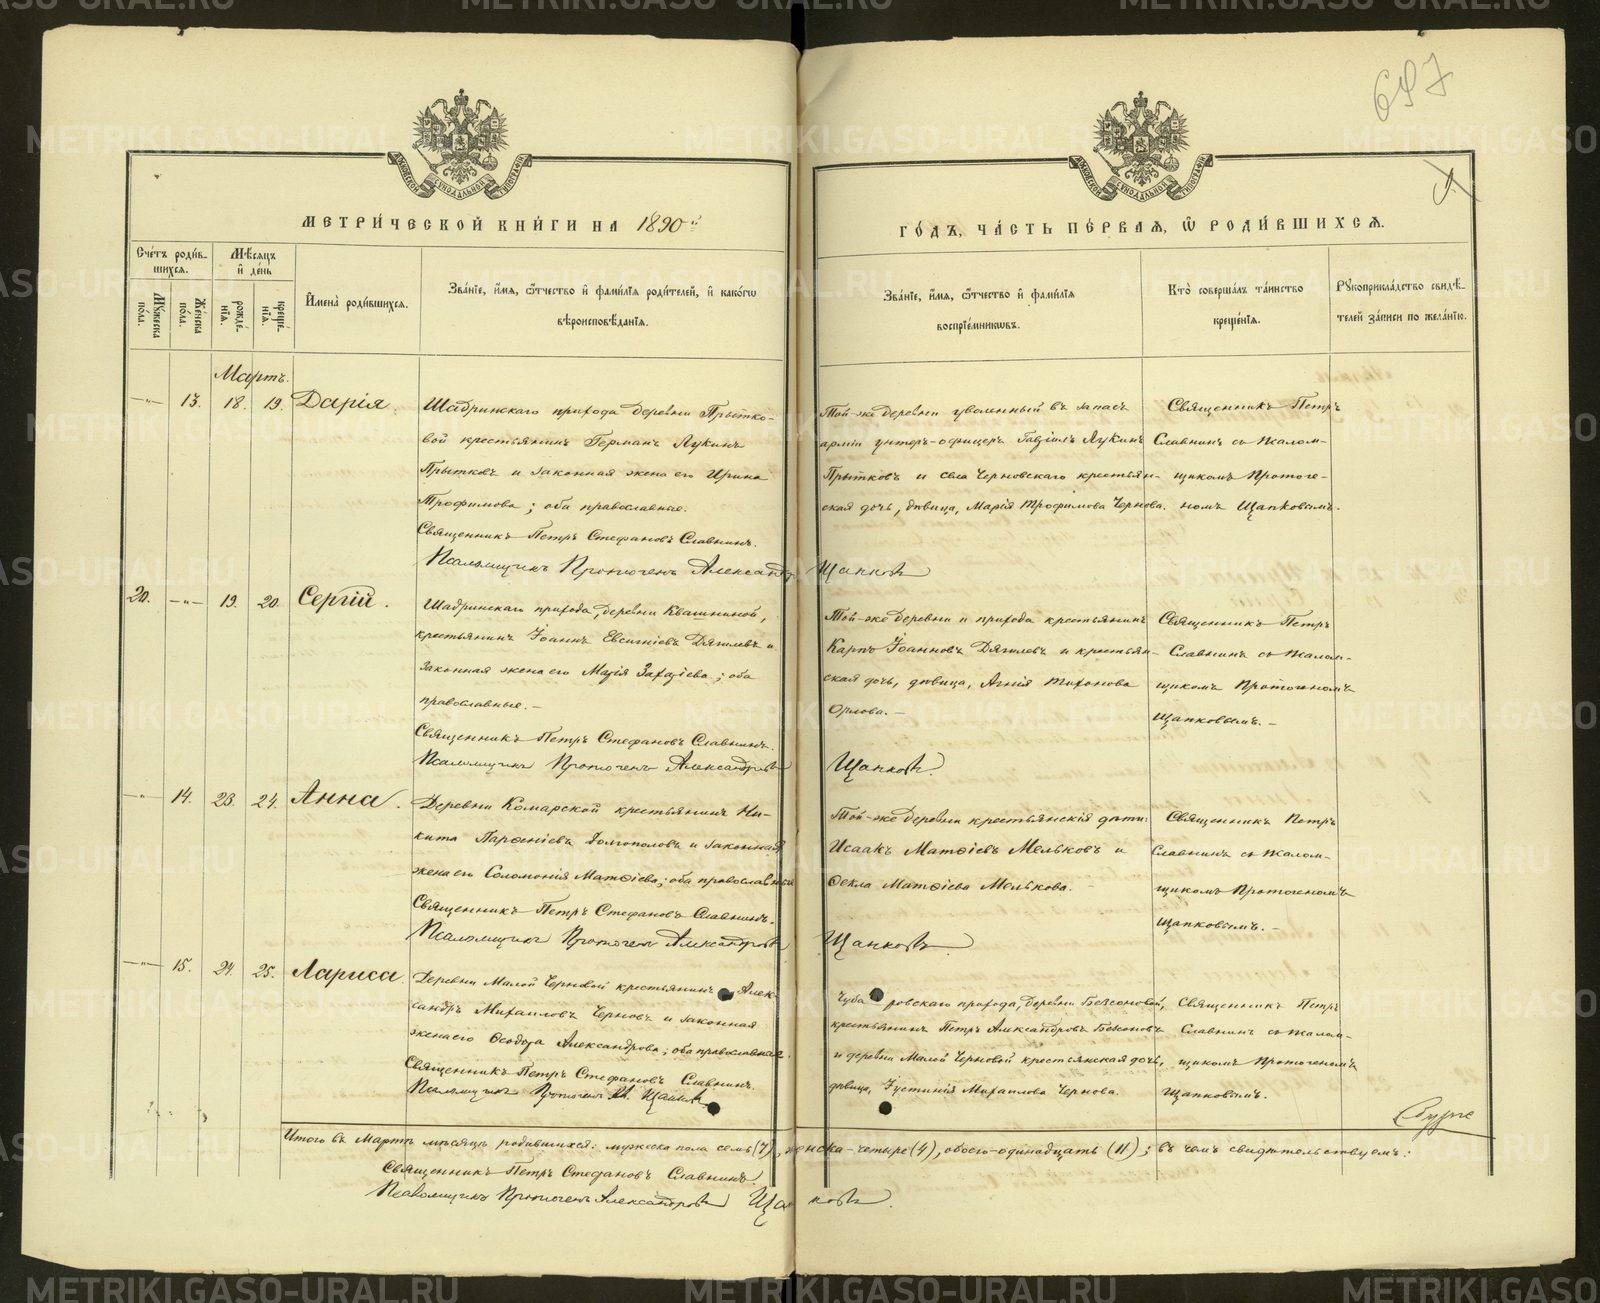 697
МЕТРИ́ЧЕСКОЙ КНИ́ГИ НА 1890й
ГО́ДЪ, ЧА́СТЬ ПЕ́РВАЯ, Ѽ РОДИ́ВШИХСЯ.
Сче́тъ роди́в-
шихся.
Му́жеска по́ла.
Же́нска по́ла.
Мѣ́сяцъ
и де́нь
рожде́нія.
креще́нія.
Имена̀ роди́вшихся.
Зва́ніе, и́мя, ѻ́тчество и фами́лія роди́телей, и како́гѡ
вѣроисповѣ́данія.
Зва́ніе, и́мя, ѻ́тчество и фами́лія
воспріе́мниковъ.
Кто̀ соверша́лъ та́инство
креще́нія.
Рꙋкоприкла́дство свидѣ́-
телей за́писи по жела́нію.
Мартъ.
—"— 13. 18. 19. Дарія.
Шадринскаго прихода деревни Прытко-
вой крестьянинъ Германъ Лукинъ
Прытковъ и законная жена его Ирина
Трофимова; оба православные.
Священникъ Петръ Стефановъ Славнинъ.
Псаломщикъ Протогенъ Александровъ Щапковъ
Той-же деревни уволенный въ запасъ
арміи унтеръ-офицеръ Гавріилъ Лукинъ
Прытковъ и села Черновскаго крестьян-
ская дочь, дѣвица, Марія Трофимова Чернова.
Священникъ Петръ
Славнинъ съ псалом-
щикомъ Протоге-
номъ Щапковымъ.
20. —"— 19. 20. Сергій.
Шадринскаго прихода, деревни Квашниной,
крестьянинъ Іоаннъ Евсигніевъ Дягилевъ и
законная жена его Марія Захаріева; оба
православные.—
Священникъ Петръ Стефановъ Славнинъ.
Псаломщикъ Протогенъ Александровъ Щапковъ.
Той-же деревни и прихода крестьянинъ
Карпъ Іоанновъ Дягилевъ и крестьян-
ская дочь, дѣвица, Агнія Тихонова
Орлова.—
Священникъ Петръ
Славнинъ съ псалом-
щикомъ Протогеномъ
Щапковымъ.—
—"— 14. 23. 24. Анна.
Деревни Комарской крестьянинъ Ни-
кита Парѳеніевъ Долгополовъ и законная
жена его Соломонія Матѳіева; оба православные
Священникъ Петръ Стефановъ Славнинъ.
Псаломщикъ Протогенъ Александровъ Щапковъ
Той-же деревни крестьянскія дѣти:
Исаакъ Матѳіевъ Мельковъ и
Ѳекла Матѳіева Мелькова.—
Священникъ Петръ
Славнинъ съ псалом-
щикомъ Протогеномъ
Щапковымъ.—
—"— 15. 24. 25. Лариса.
Деревни Малой Черновой крестьянинъ Алек-
сандръ Михаиловъ Черновъ и законная
жена его Ѳеодора Александрова; оба православные.
Священникъ Петръ Стефановъ Славнинъ.
Псаломщикъ Протогенъ Ал. Щапковъ
Чубаровскаго прихода, деревни Безсоновой,
крестьянинъ Петръ Александровъ Безсоновъ
и деревни Малой Черновой крестьянская дочь,
дѣвица, Іустинія Михаилова Чернова.
Священникъ Петръ
Славнинъ съ псалом-
щикомъ Протогеномъ
Щапковымъ.
Итого въ Мартѣ мѣсяцѣ родившихся: мужеска пола семь (7), женска-четыре (4), обоего-одинадцать (11); въ чемъ свидѣтельствуемъ:
Священникъ Петръ Стефановъ Славнинъ.
Псаломщикъ Протогенъ Александровъ Щапковъ.
METRIKI.GASO-URAL.RU